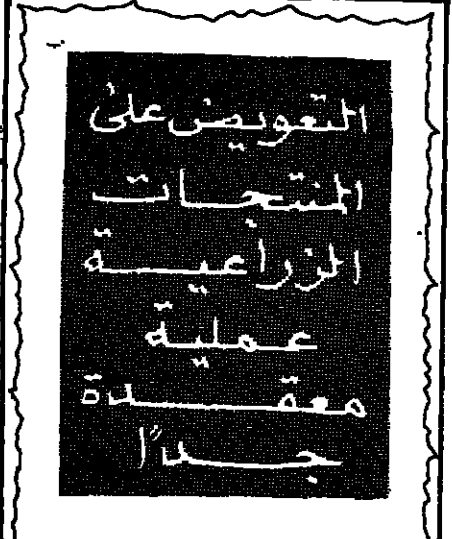 التعويض على
المنتجات
الزراعية
عملية
معقدة
جدًا